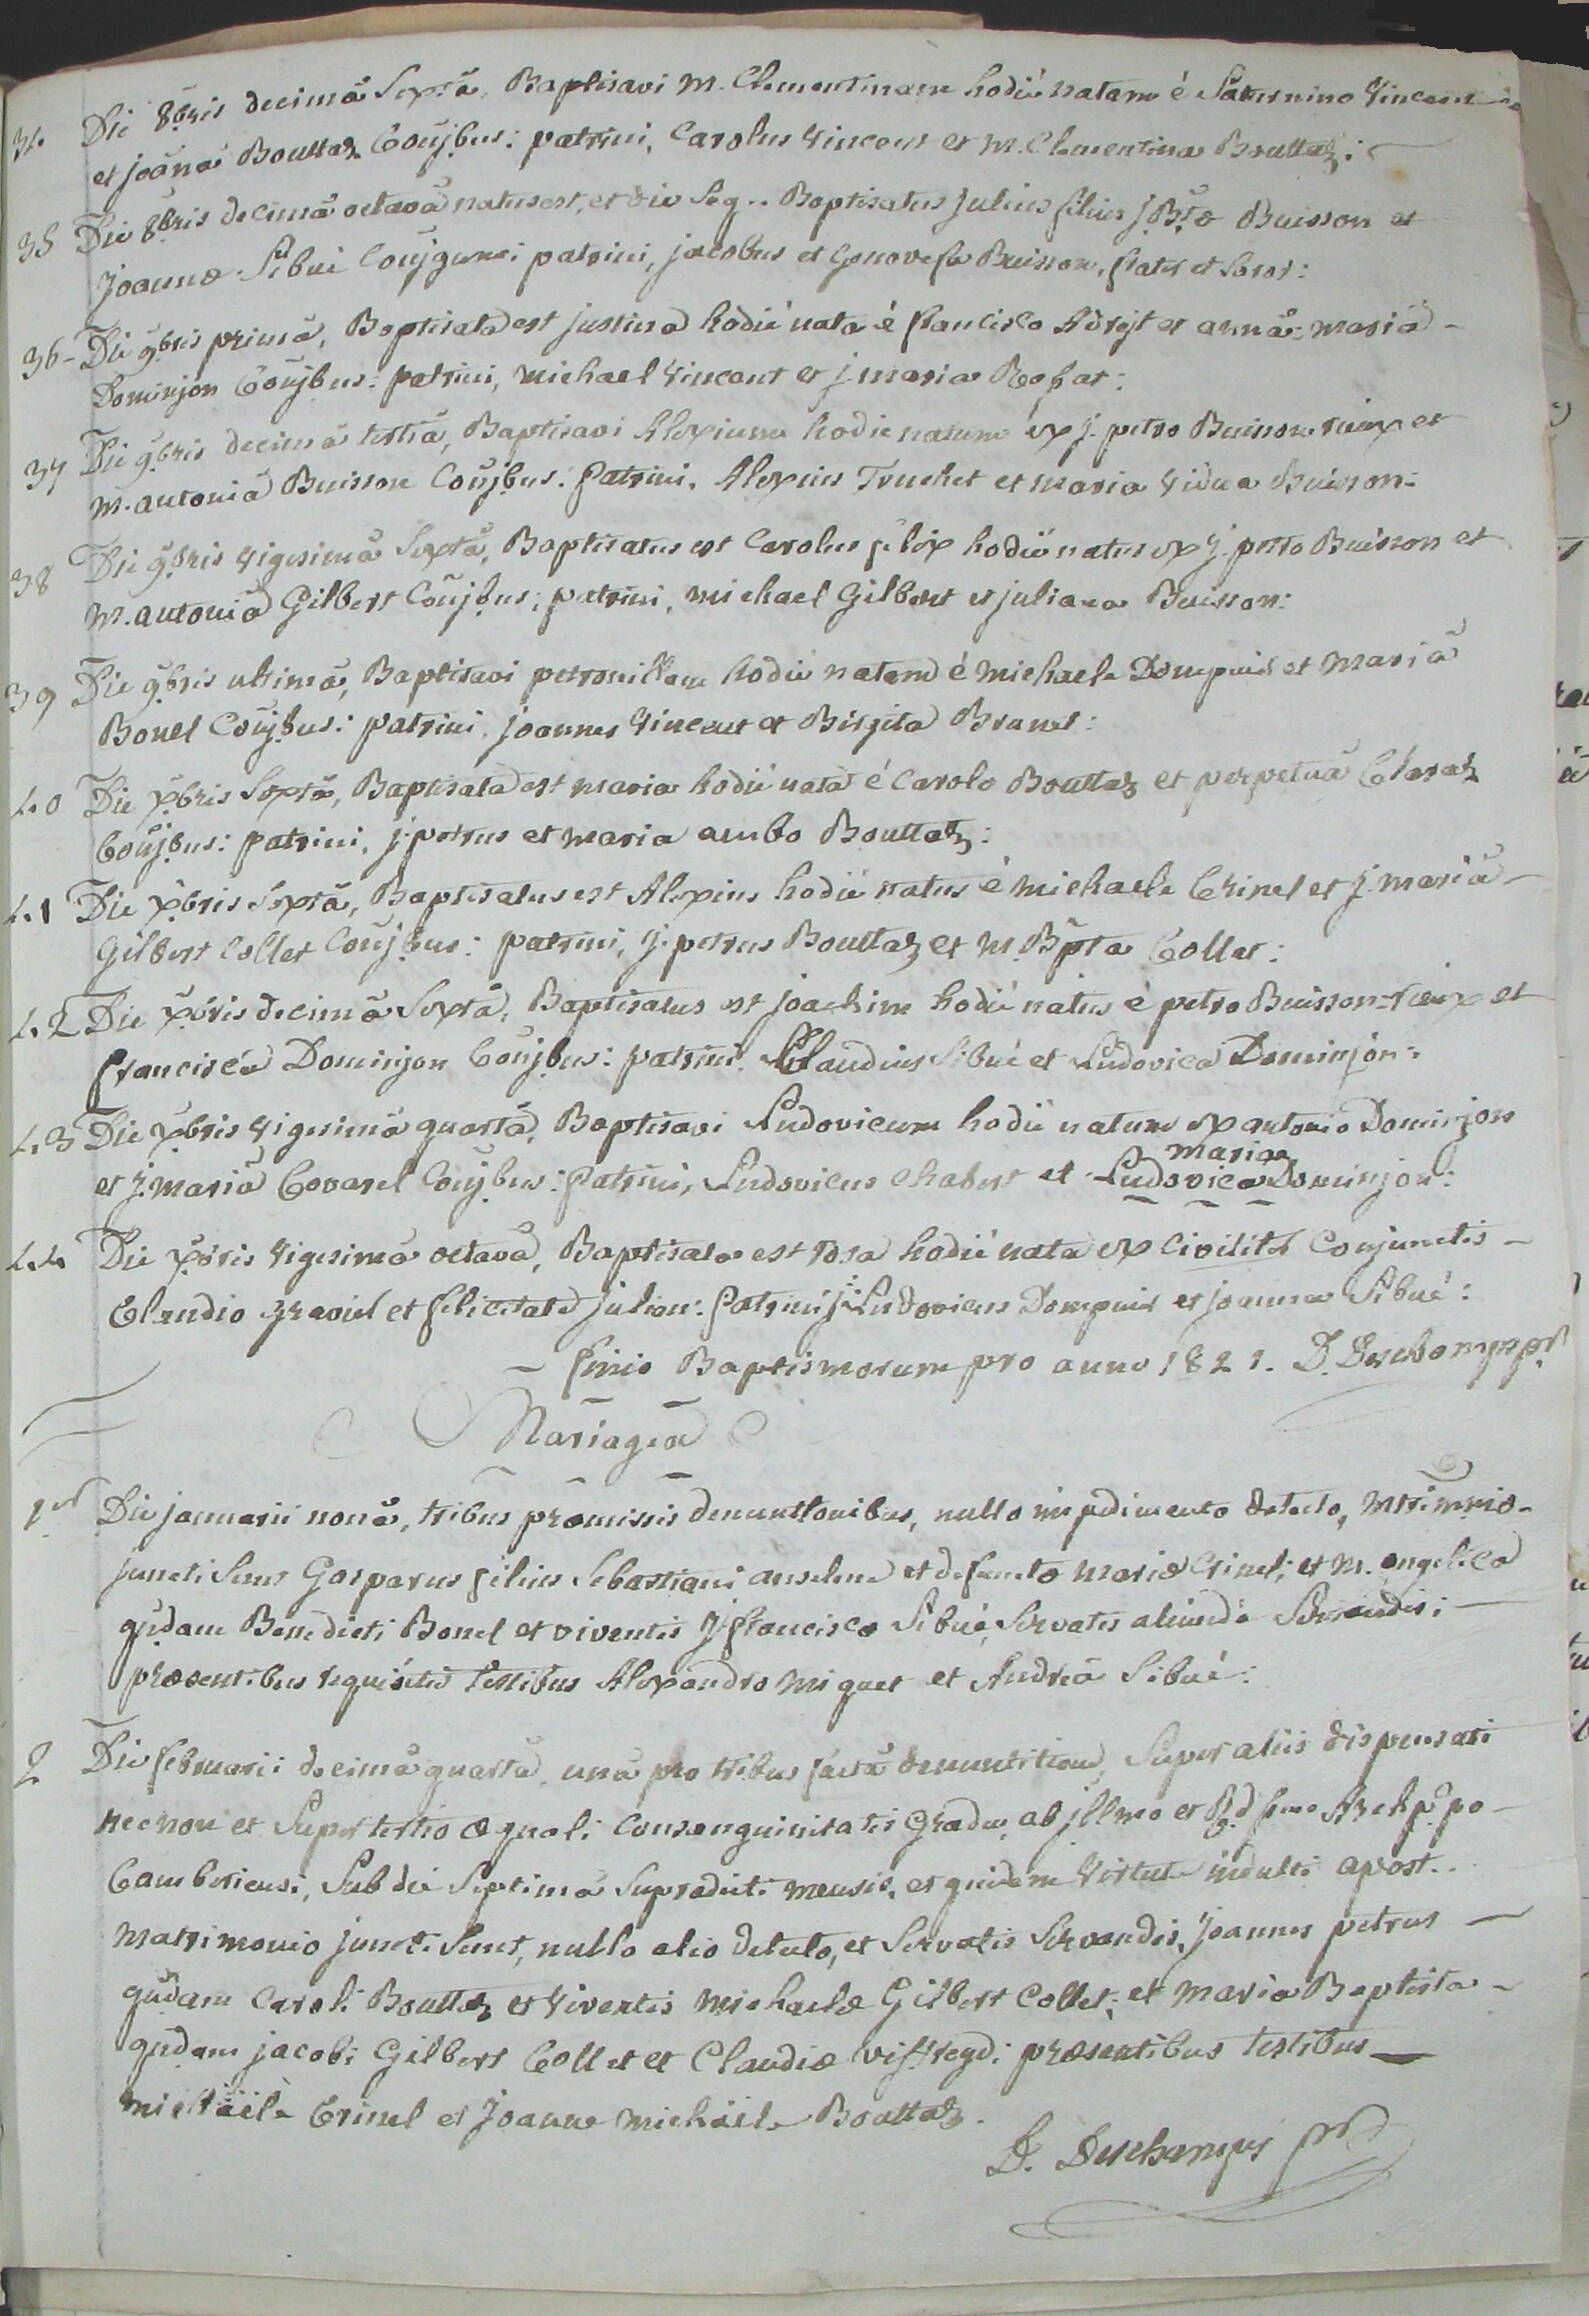 34. Die 8bris decimâ Sextâ, Baptisavi M. Clementinam hodiè natam è Saturnino Vincent
et joanâ Bouttaz Coujbus: patrini, Carolus Vincent et M. Clementina Bouttaz:
35 Die 8bris decimâ octavâ natus est, et die Seq.. Baptisatus julius filius j. Btæ Buisson et
Joannæ Sibué Conjgum: patrini, jacobus et Genovefa Buisson, frater et Soror:
36- Die 9bris primâ, Baptisata est justina hodiè nata è francisco Adrejt et annâ-mariâ-
Dominjon Coujbus: patrini, michael Vincent et j. maria Rosat:
37 Die 9bris decimâ tertiâ, Baptisavi Alexium hodie natum ex j. petro Buisson-rieux et
m. antoniâ Buisson Coujbus: patrini, Alexius Truchet et maria Vidua Buisson:
38 Die 9bris vigesimâ Sextâ, Baptisatus est Carolus felix hodiè natus ex j. petro Buisson et
m. antoniâ Gilbert Coujbus: patrini, michael Gilbert et juliana Buisson:
39 Die 9bris ultimâ, Baptisavi petronillam hodiè natam è michaele Dompnié et Mariâ
Bonel Coujbus: patrini, joannes Vincent et Birgita Brunet:
40 Die Xbris Sextâ, Baptisata est maria hodiè nata è Carolo Bouttaz et perpetuâ Claraz
Coujbus: patrini, j. petrus et maria ambo Bouttaz:
41 Die Xbris Sextâ, Baptisatus est Alexius hodiè natus è michaele Crinel et j. mariâ-
Gilbert Collet Coujbus: patrini, j. petrus Bouttaz et M. Bpta Collet:
42 Die Xbris decimâ Sextâ, Baptisatus est joachim hodiè natus è petro Buisson-rieux et
franciscâ Dominjon Coujbus: patrini, Claudius Sibué et Ludovica Dominjon:
43 Die Xbris vigesimâ quartâ, Baptisavi Ludovicum hodiè natum ex antonio Dominjon
maria
et j. mariâ Covarel Coujbus: patrini, Ludovicus chabert et Ludovica Dominjon:
44 Die Xbris vigesimâ octavâ, Baptisata est rosa hodiè nata ex Civilitèr Conjunctis-
Claudio graviel et felicitate julian: patrini j. Ludovicus Dompnié et joanna Sibué:
- finis Baptismorum pro anno 1821. D. Deschamps pr
Mariagea
1us Die januarii nonâ, tribus præmissis denuntionibus, nullo impedimento detecto, mtrimnio-
juncti Sunt Gasparus filius Sebastiani anselme et defunctæ mariæ Crinel; et M. angelica
qudam Benedicti Bonel et viventis j. franciscæ Sibué, Servatis aliundè Servandis;
præsentibus requisitis testibus Alexandro miquet et Andreâ Sibué:
2 Die februarii decimâ quartâ, unâ pro tribus factâ denuntitione, Super aliis dispensati
necnon et Super tertio æquali Consanguinitatis Gradu, ab jllmo et R.dssmo Archp.po-
Camberiensi, Sub die Septimâ Supradicti mensis, et quidem virtute indulti apost..
Matrimonio juncti Sunt, nullo alio detecto, et Servatis Servandis, Joannes petrus
qudam Caroli Bouttaz et viventis michaelæ Gilbert Collet; et maria Baptista-
qudam jacobi Gilbert Collet et Claudiæ viffreydi præsentibus testibus
michäele Crinel et Joanne michäele Bouttaz.
D. Deschamps pr